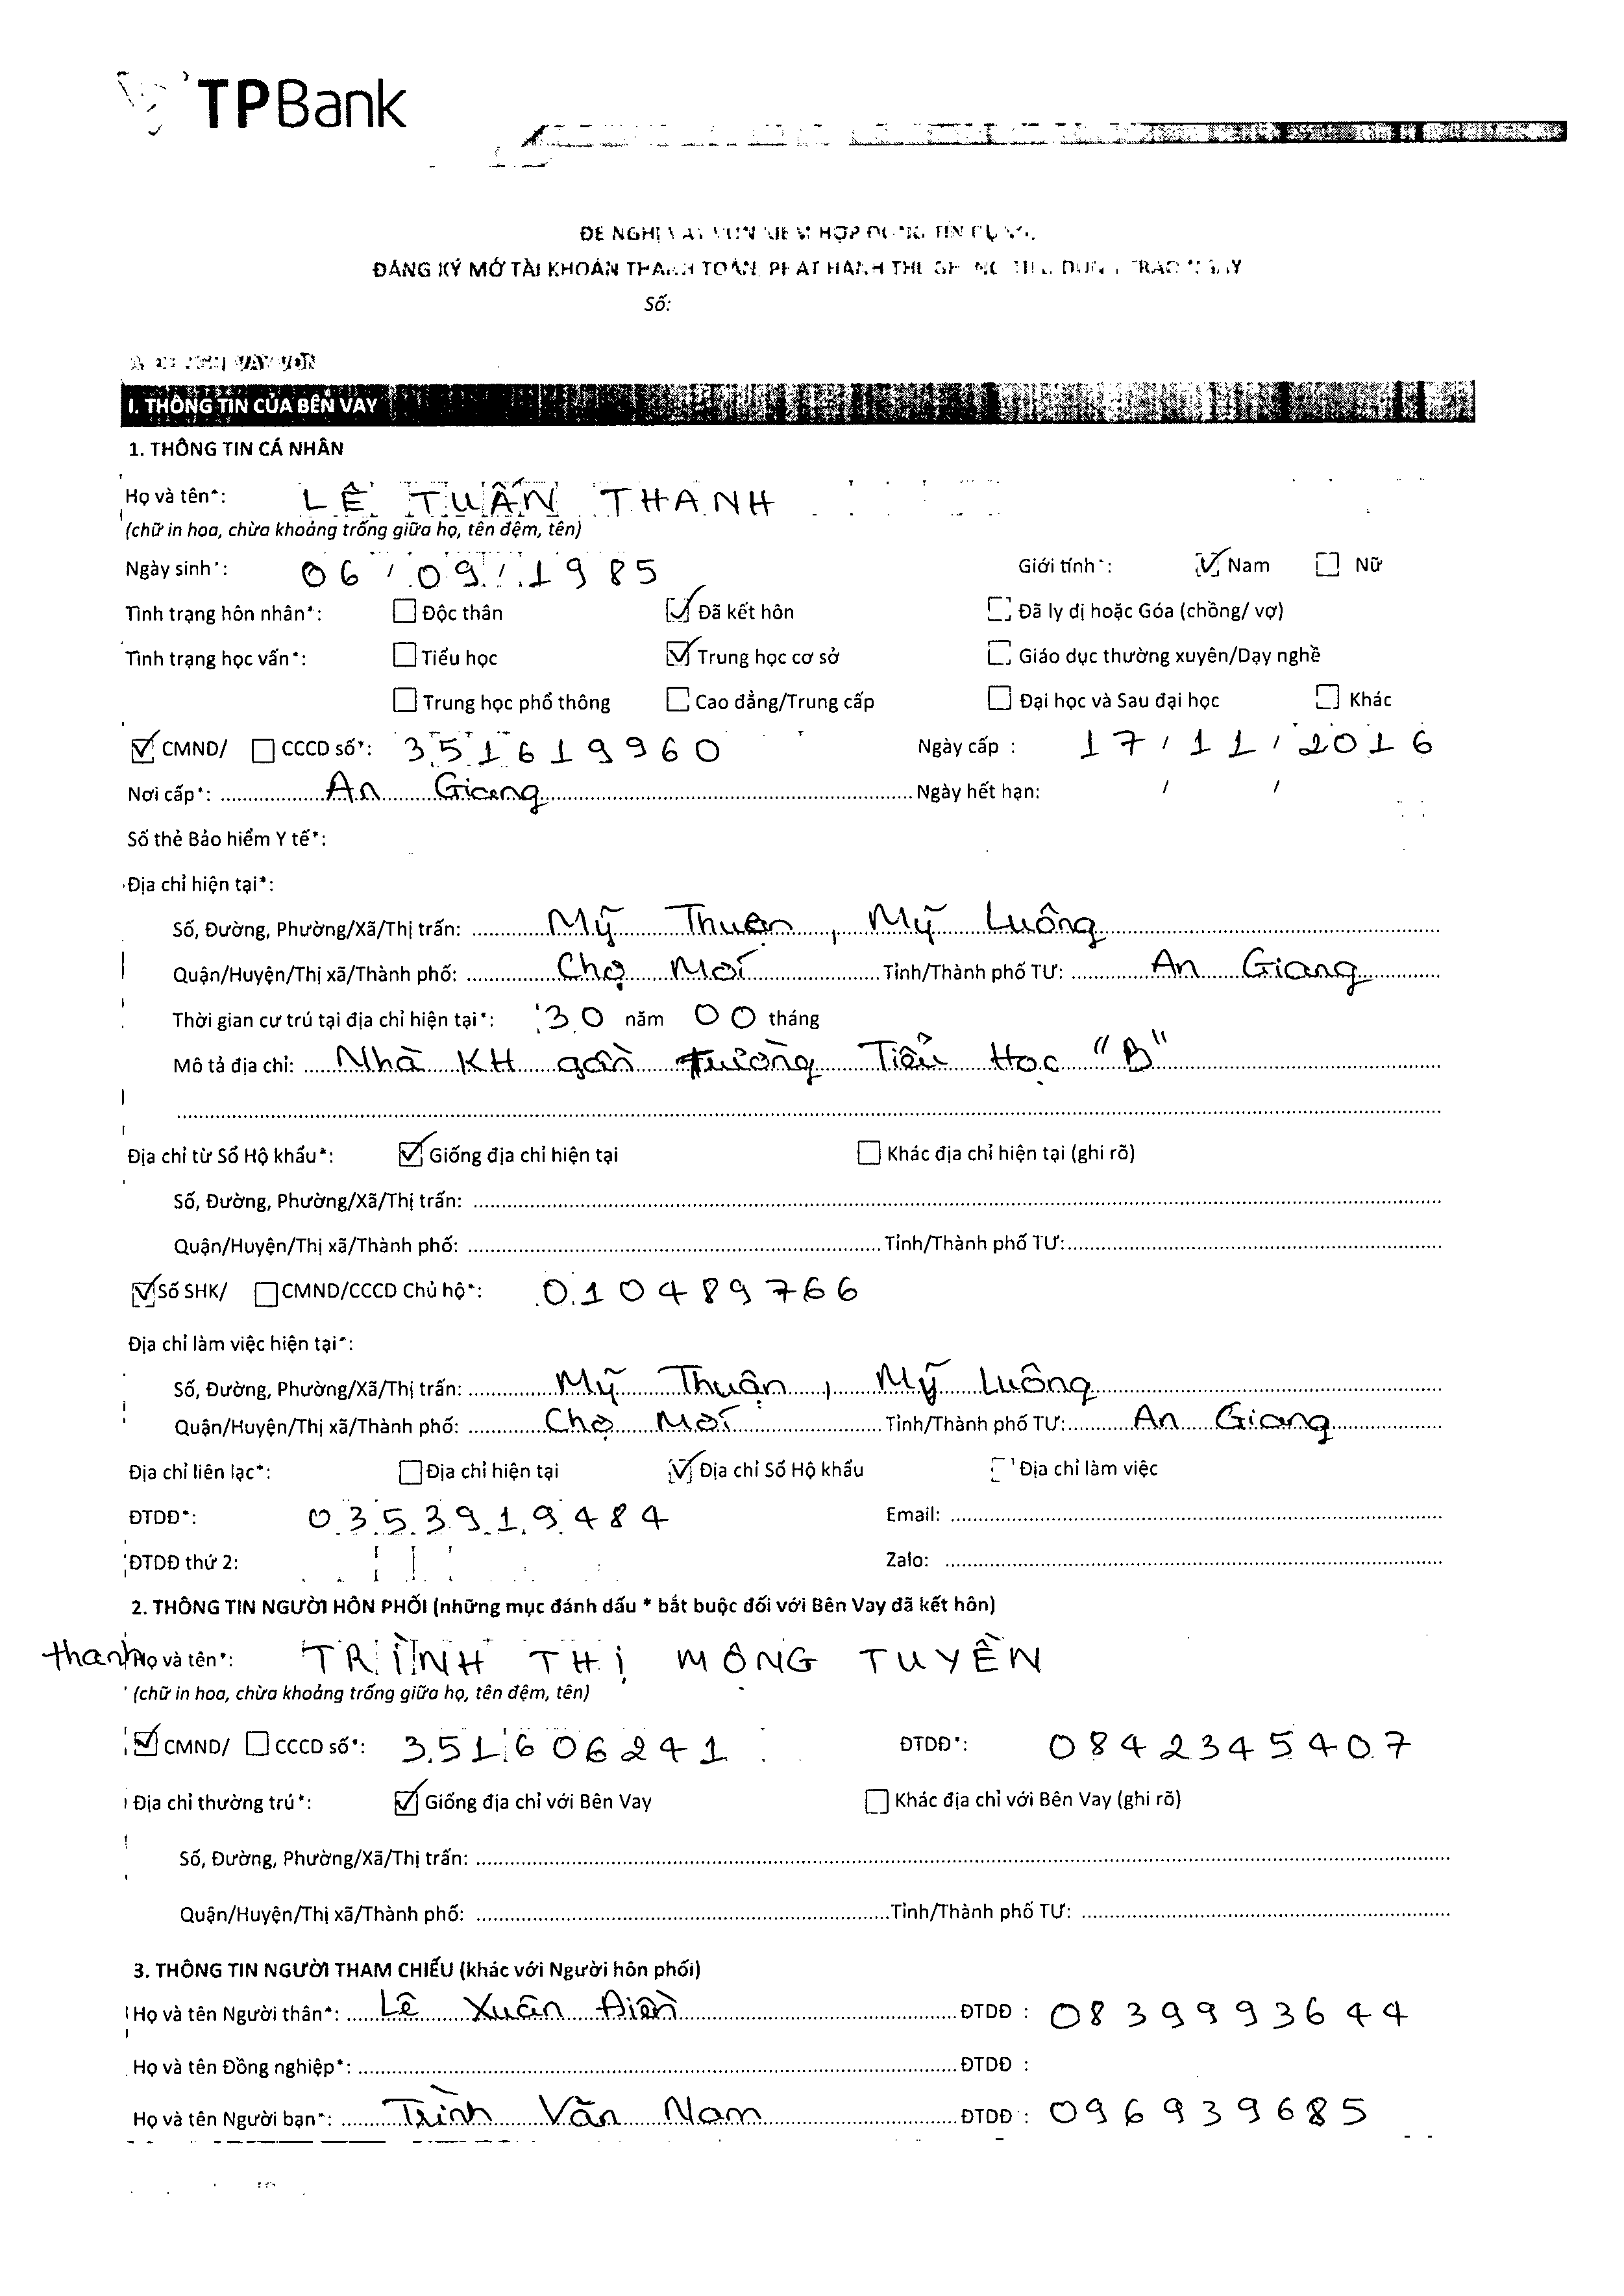 TPBank
ĐỀ NGHỊ VAY VỐN KIÊM HỢP ĐỒNG TÍN DỤNG,
ĐĂNG KÝ MỞ TÀI KHOẢN THANH TOÁN, PHÁT HÀNH THẺ
Số:
VAY VỐN
I. THÔNG TIN CỦA BÊN VAY
1. THÔNG TIN CÁ NHÂN
Họ và tên*: LÊ TUẤN THANH
(chữ in hoa, chừa khoảng trống giữa họ, tên đệm, tên)
Ngày sinh*: 06 / 09 / 1985 Giới tính*: ☑ Nam ☐ Nữ
Tình trạng hôn nhân*: ☐ Độc thân ☑ Đã kết hôn ☐ Đã ly dị hoặc Góa (chồng/ vợ)
Tình trạng học vấn*: ☐ Tiểu học ☑ Trung học cơ sở ☐ Giáo dục thường xuyên/Dạy nghề
☐ Trung học phổ thông ☐ Cao đẳng/Trung cấp ☐ Đại học và Sau đại học ☐ Khác
☑ CMND/ ☐ CCCD số*: 351619960 Ngày cấp : 17 / 11 / 2016
Nơi cấp*: An Giang Ngày hết hạn: / /
Số thẻ Bảo hiểm Y tế*:
Địa chỉ hiện tại*:
Số, Đường, Phường/Xã/Thị trấn: Mỹ Thuận, Mỹ Luông
Quận/Huyện/Thị xã/Thành phố: Chợ Mới Tỉnh/Thành phố TƯ: An Giang
Thời gian cư trú tại địa chỉ hiện tại*: 30 năm 00 tháng
Mô tả địa chỉ: Nhà KH gần trường Tiểu Học "B"
Địa chỉ từ Sổ Hộ khẩu*: ☑ Giống địa chỉ hiện tại ☐ Khác địa chỉ hiện tại (ghi rõ)
Số, Đường, Phường/Xã/Thị trấn:
Quận/Huyện/Thị xã/Thành phố: Tỉnh/Thành phố TƯ:
☑ Số SHK/ ☐ CMND/CCCD Chủ hộ*: 010489766
Địa chỉ làm việc hiện tại*:
Số, Đường, Phường/Xã/Thị trấn: Mỹ Thuận, Mỹ Luông
Quận/Huyện/Thị xã/Thành phố: Chợ Mới Tỉnh/Thành phố TƯ: An Giang
Địa chỉ liên lạc*: ☐ Địa chỉ hiện tại ☑ Địa chỉ Sổ Hộ khẩu ☐ Địa chỉ làm việc
ĐTDĐ*: 0353919484 Email:
ĐTDĐ thứ 2: Zalo:
2. THÔNG TIN NGƯỜI HÔN PHỐI (những mục đánh dấu * bắt buộc đối với Bên Vay đã kết hôn)
thanh Họ và tên*: TRÌNH THỊ MỘNG TUYỀN
(chữ in hoa, chừa khoảng trống giữa họ, tên đệm, tên)
☑ CMND/ ☐ CCCD số*: 351606241 ĐTDĐ*: 0842345407
Địa chỉ thường trú*: ☑ Giống địa chỉ với Bên Vay ☐ Khác địa chỉ với Bên Vay (ghi rõ)
Số, Đường, Phường/Xã/Thị trấn:
Quận/Huyện/Thị xã/Thành phố: Tỉnh/Thành phố TƯ:
3. THÔNG TIN NGƯỜI THAM CHIẾU (khác với Người hôn phối)
Họ và tên Người thân*: Lê Xuân Điền ĐTDĐ : 0839993644
Họ và tên Đồng nghiệp*: ĐTDĐ :
Họ và tên Người bạn*: Trình Văn Nam ĐTDĐ : 096939685